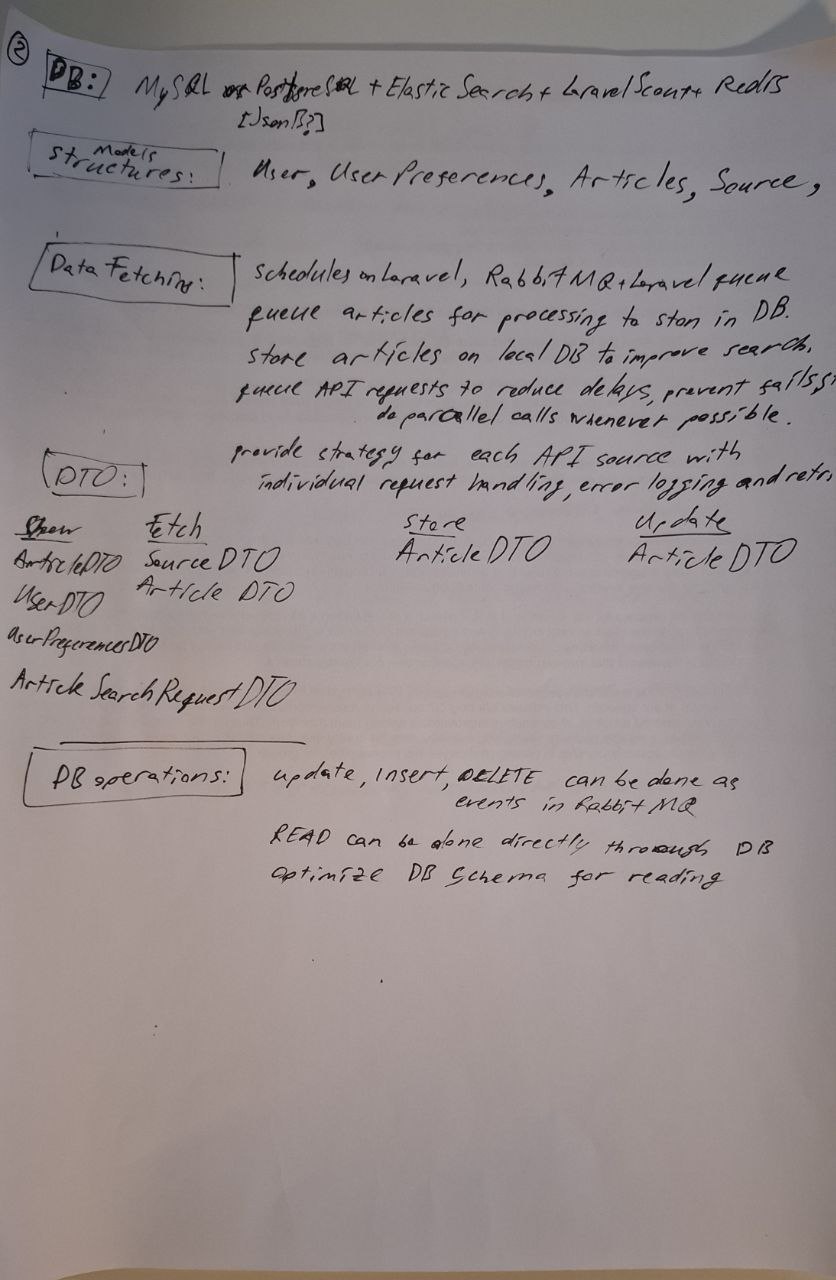 ②
DB: MySQL or PostgreSQL + Elastic Search + Laravel Scout + Redis
[JsonB?]
Models
Structures: User, User Preferences, Articles, Source,
Data Fetching: schedules on Laravel, RabbitMQ + Laravel queue
queue articles for processing to store in DB.
store articles on local DB to improve search.
queue API requests to reduce delays, prevent fails,
do parcallel calls whenever possible.
provide strategy for each API source with
individual request handling, error logging and retri
DTO:
Show Fetch Store Update
ArticleDTO SourceDTO ArticleDTO ArticleDTO
UserDTO Article DTO
UserPreferencesDTO
Article Search Request DTO
DB operations: update, insert, DELETE can be done as
events in RabbitMQ
READ can be done directly through DB
optimize DB Schema for reading